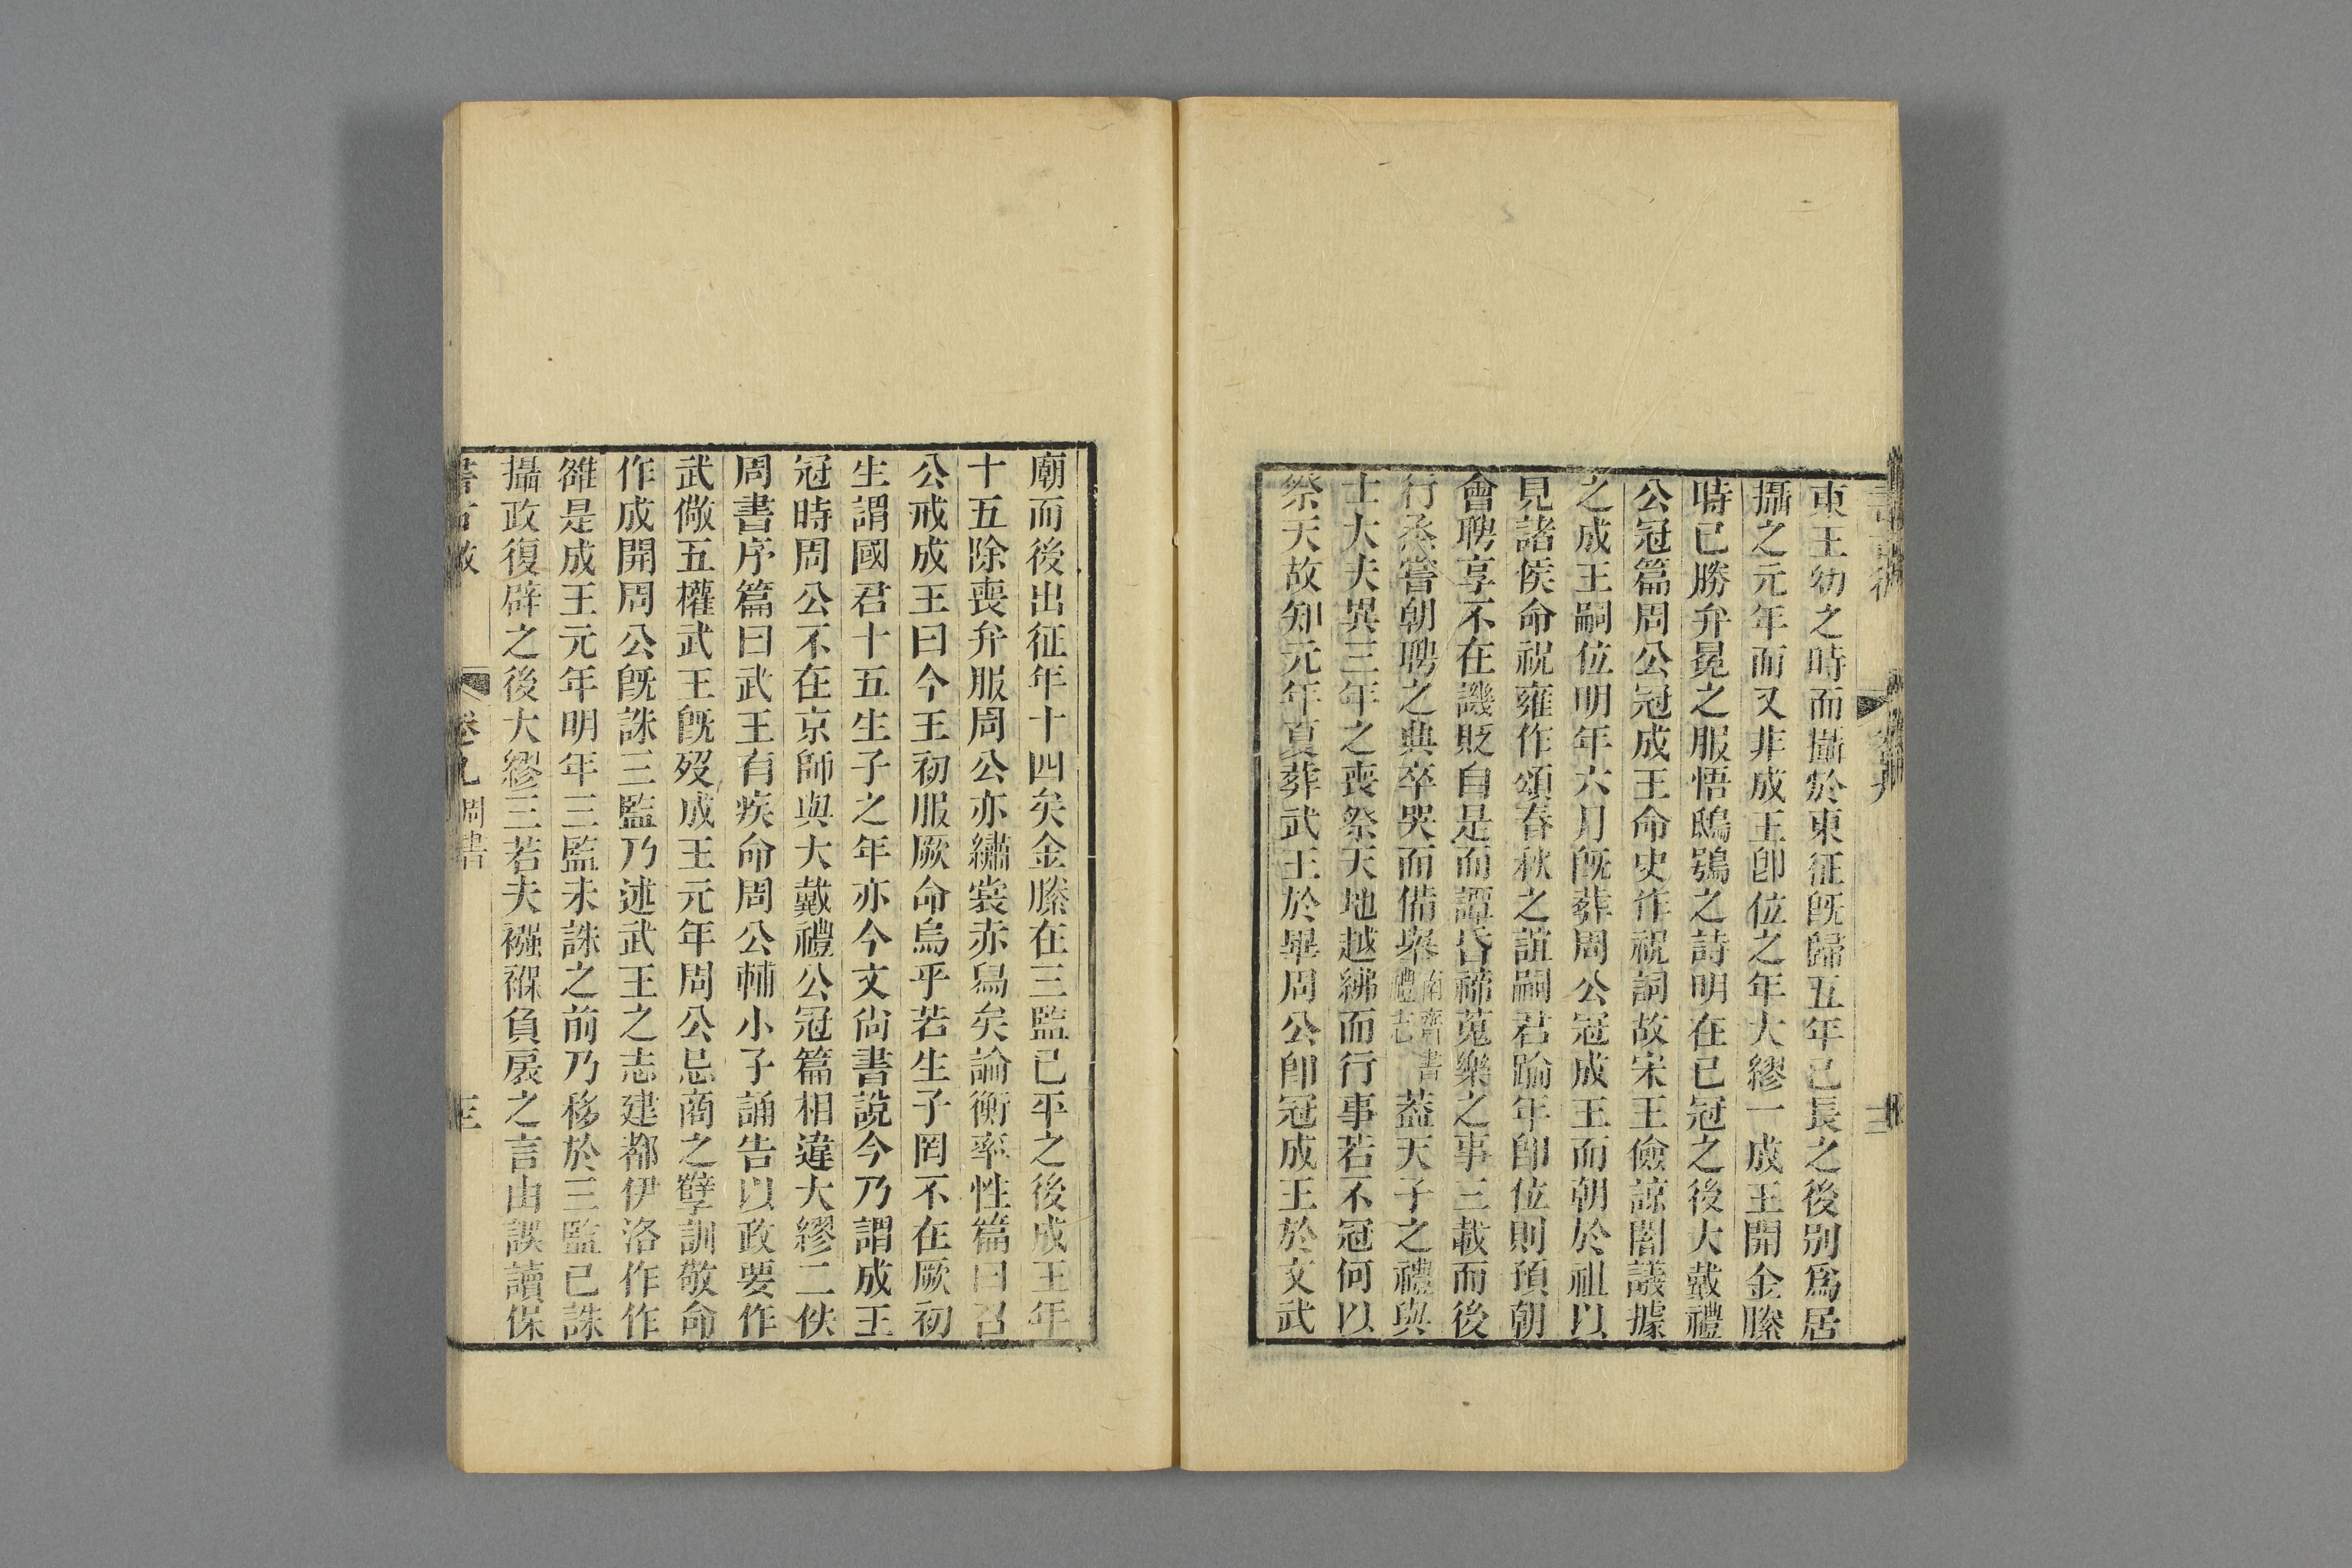 東王幼之時而攝於東征旣歸五年已長之後別爲居
攝之元年而又非成王卽位之年大繆一成王開金縢
時已勝弁冕之服悟鴟鴞之詩明在已冠之後大戴禮
公冠篇周公冠成王命史作祝詞故宋王儉諒闇議據
之成王嗣位明年六月旣葬周公冠成王而朝於祖以
見諸侯命祝雍作頌春秋之誼嗣君踰年卽位則預朝
會聘享不在譏貶自是而譚昏禘蒐樂之事三載而後
行烝嘗朝聘之典卒哭而備舉南齊書禮志葢天子之禮與
士大夫異三年之喪祭天地越紼而行事若不冠何以
祭天故知元年夏葬武王於畢周公卽冠成王於文武
廟而後出征年十四矣金縢在三監已平之後成王年
十五除喪弁服周公亦繡裳赤舄矣論衡率性篇曰召
公戒成王曰今王初服厥命烏乎若生子罔不在厥初
生謂國君十五生子之年亦今文尚書說今乃謂成王
冠時周公不在京師與大戴禮公冠篇相違大繆二佚
周書序篇曰武王有疾命周公輔小子誦告以政要作
武儆五權武王旣歿成王元年周公忌商之孽訓敬命
作成開周公旣誅三監乃述武王之志建都伊洛作作
雒是成王元年明年三監未誅之前乃移於三監已誅
攝政復辟之後大繆三若夫襁褓負扆之言由誤讀保
卷九 周書